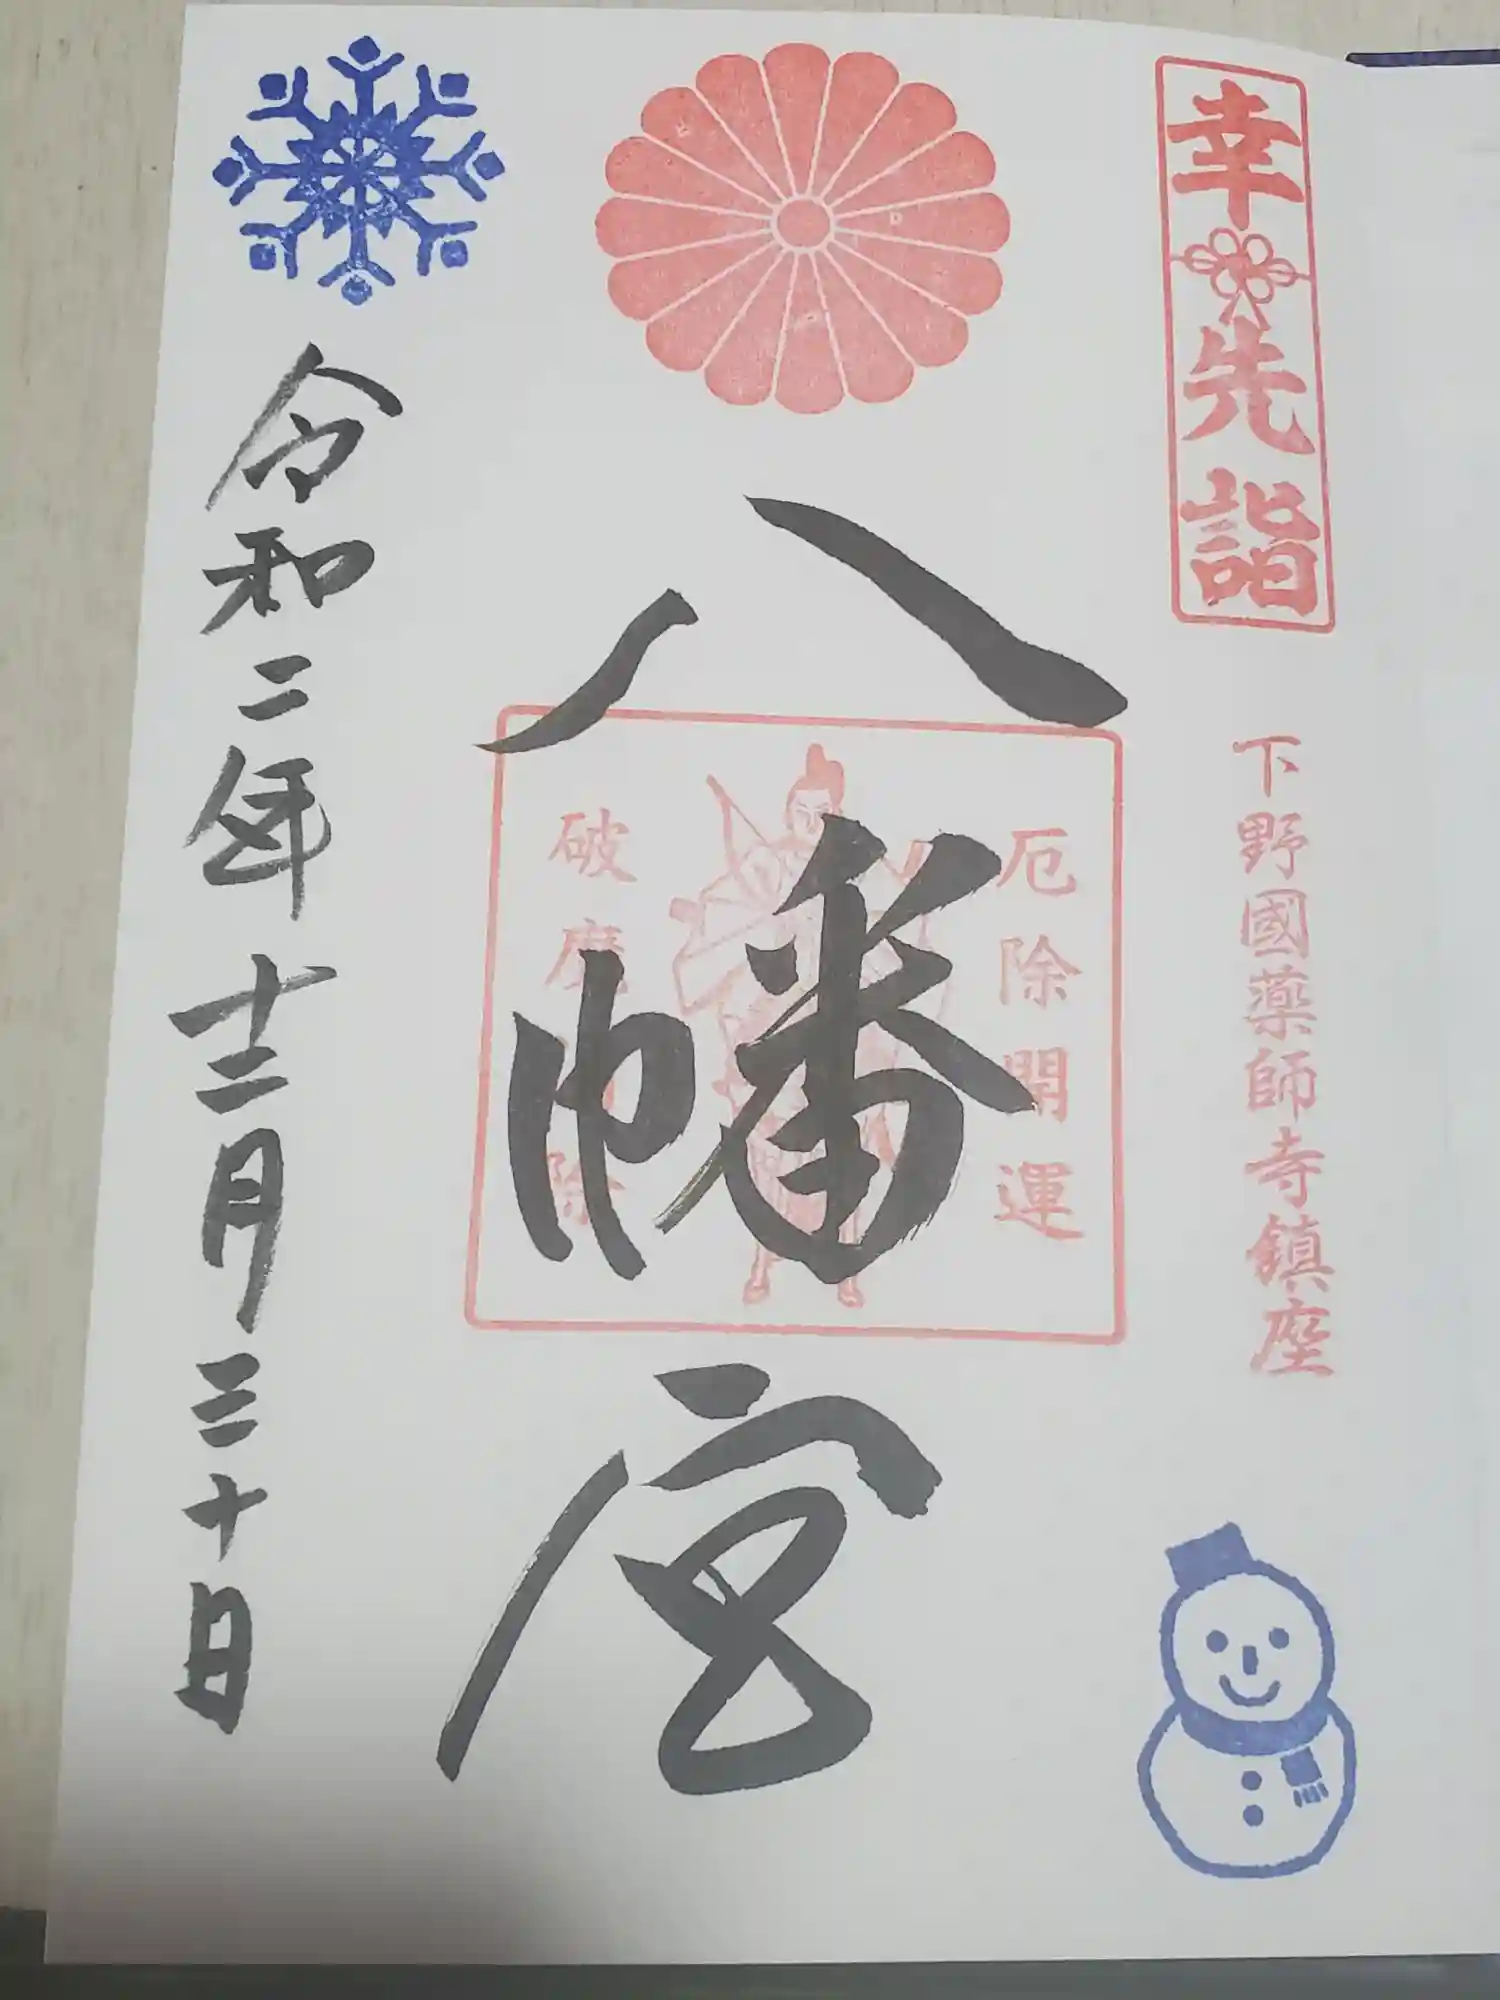 幸先詣
下野國薬師寺鎮座
八幡宮
厄除開運
破魔 除
令和二年十二月三十日